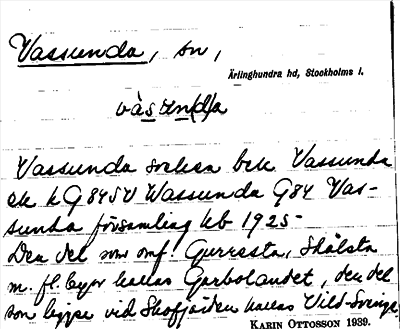 Vassunda, sn,
Ärlinghundra hd, Stockholms l.
vàsun(d)a
Vassunda socken bek. Vassunda
ek kG84SV Wassunda G84 Vas-
sunda församling kb 1925-
Den del som omf. Gurresta, Skålsta
m. fl. byar kallas Garbolandet, den del
som ligger vid Skofjärden kallas Vild-Sverige
KARIN OTTOSSON 1939.